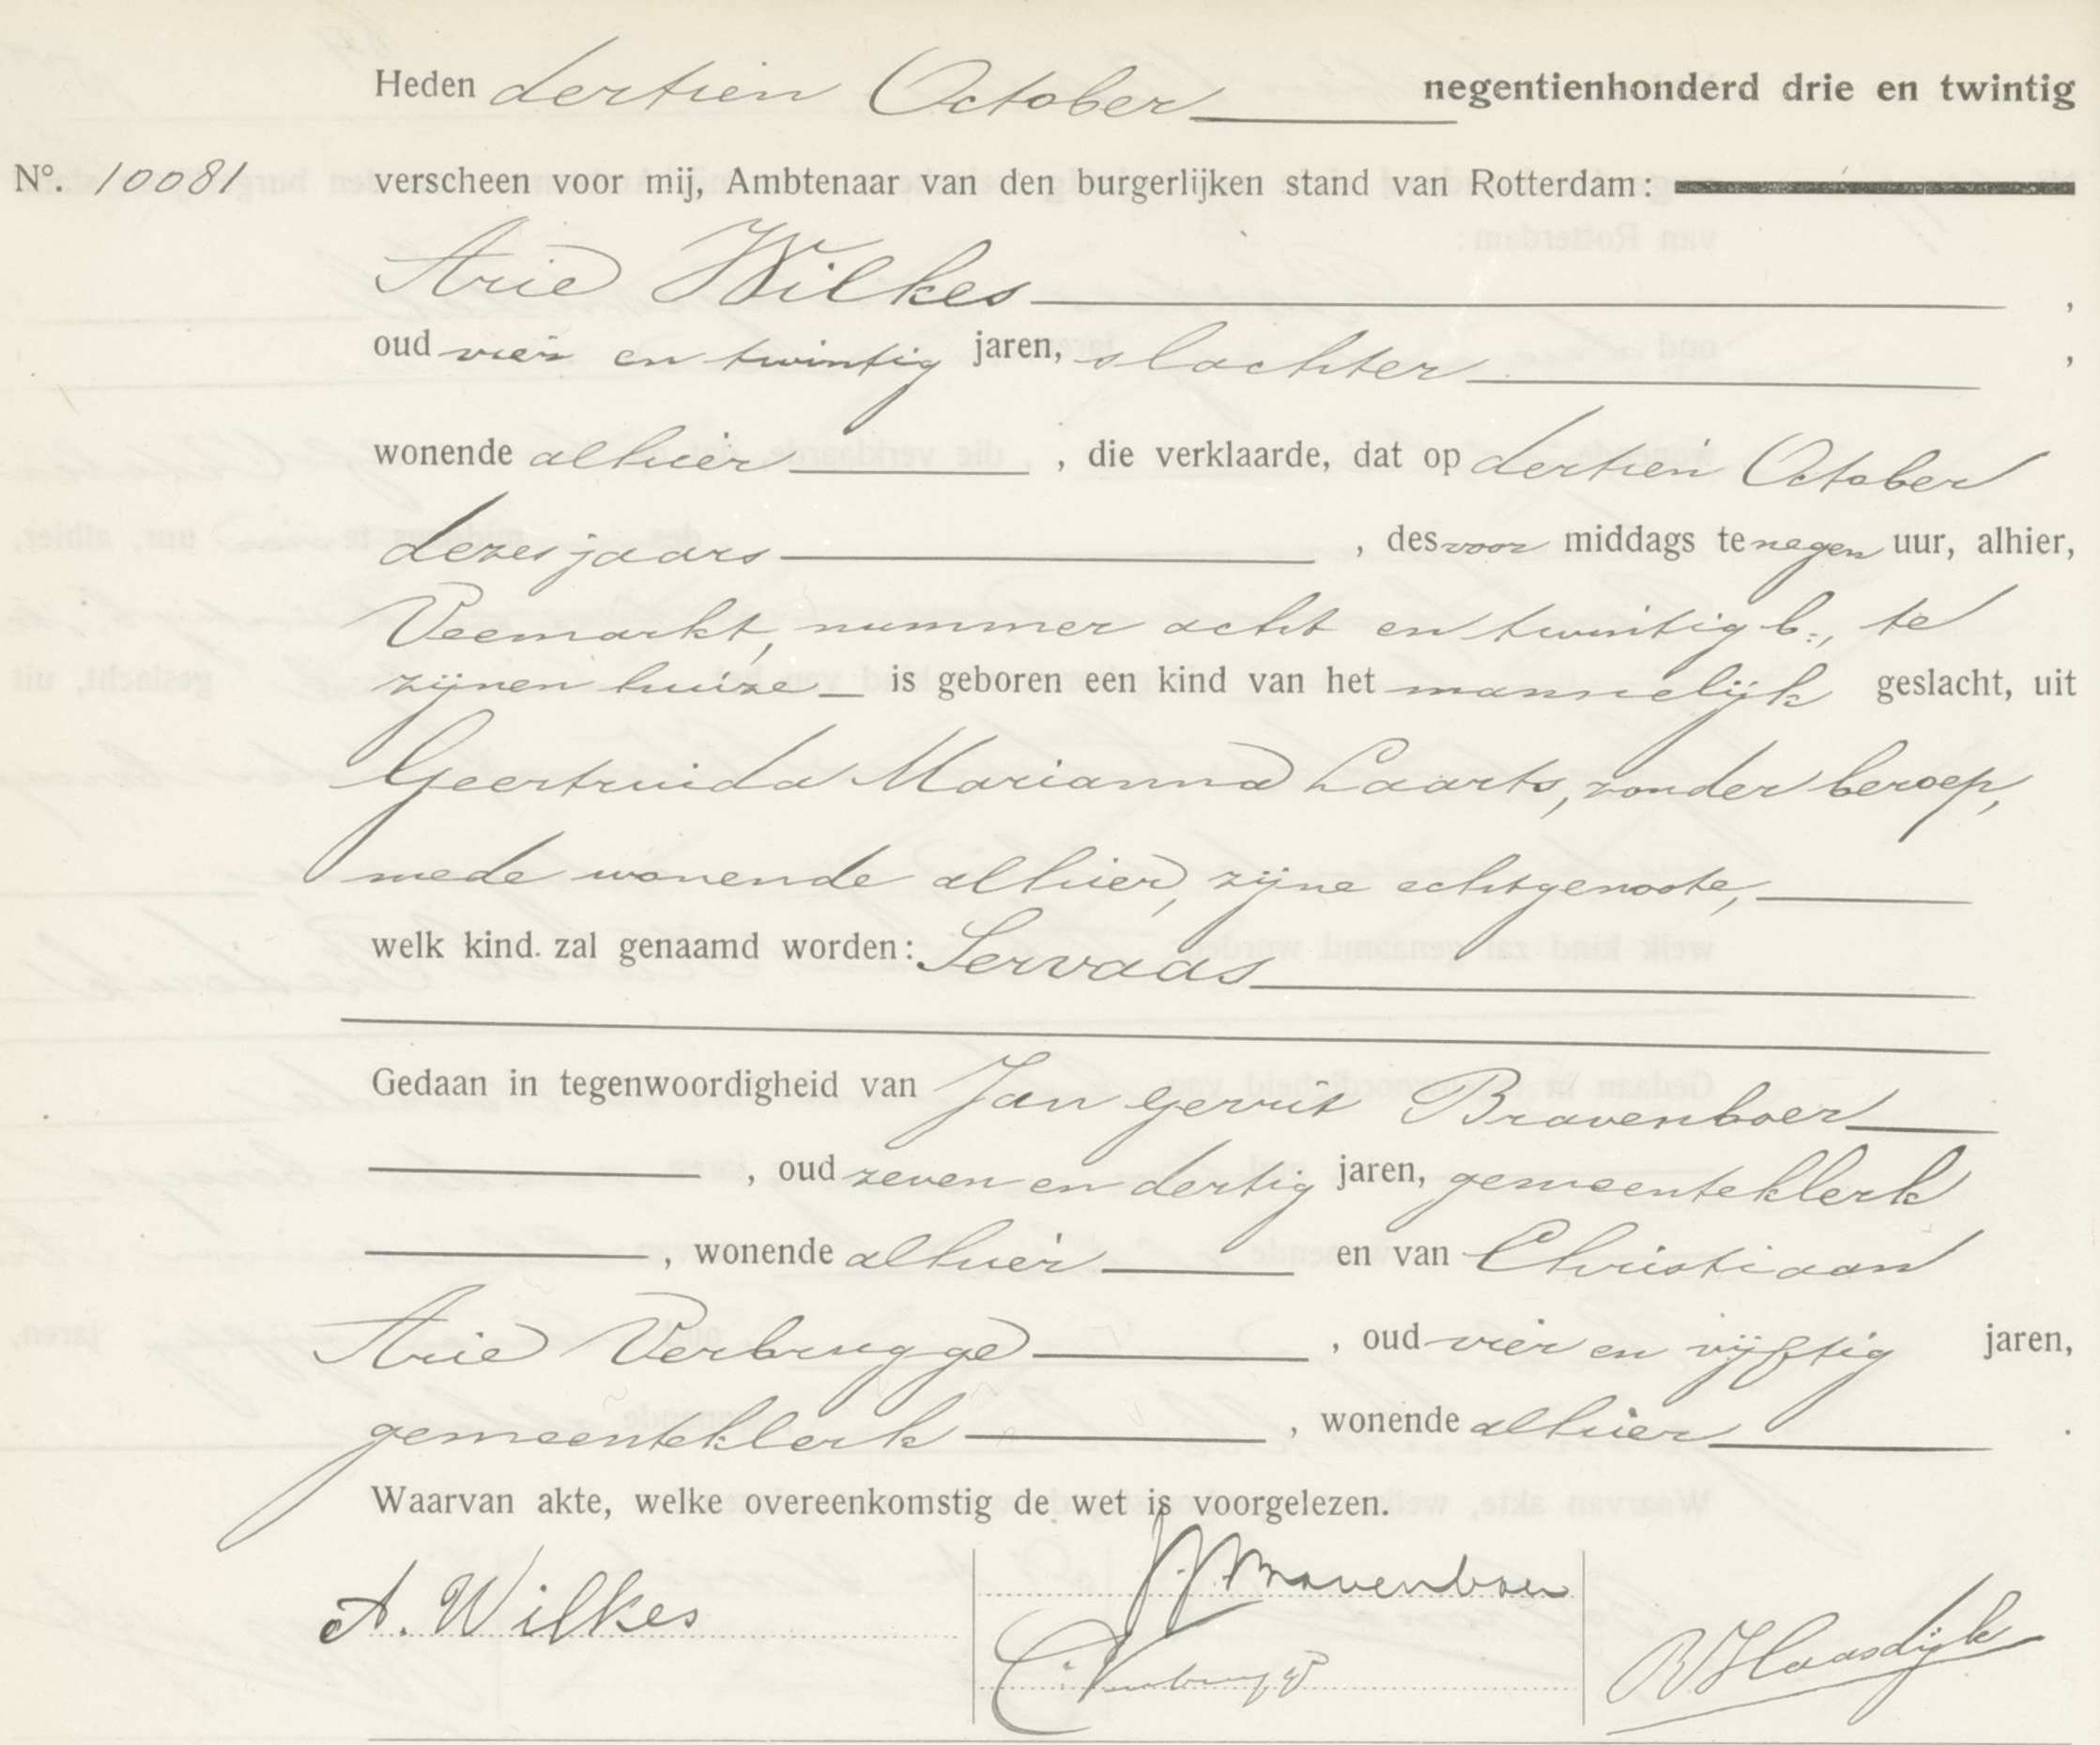 Heden dertien October negentienhonderd drie en twintig
No. 10081 verscheen voor mij, Ambtenaar van den burgerlijken stand van Rotterdam:
Arie Wilkes,
oud vier en twintig jaren, slachter,
wonende alhier, die verklaarde, dat op dertien October
dezes jaars, des voor middags te negen uur, alhier,
Veemarkt, nummer acht en twintig b., te
zijnen huize is geboren een kind van het mannelijk geslacht, uit
Geertruida Marianna Laarts, zonder beroep,
mede wonende alhier, zijne echtgenoote,
welk kind zal genaamd worden: Servaas
Gedaan in tegenwoordigheid van Jan Gerrit Bravenboer
, oud zeven en dertig jaren, gemeenteklerk
, wonende alhier en van Christiaan
Arie Verbrugge, oud vier en vijftig jaren,
gemeenteklerk, wonende alhier.
Waarvan akte, welke overeenkomstig de wet is voorgelezen.
J.G. Bravenboer
A. Wilkes
C. Verbrugge
Haasdijk